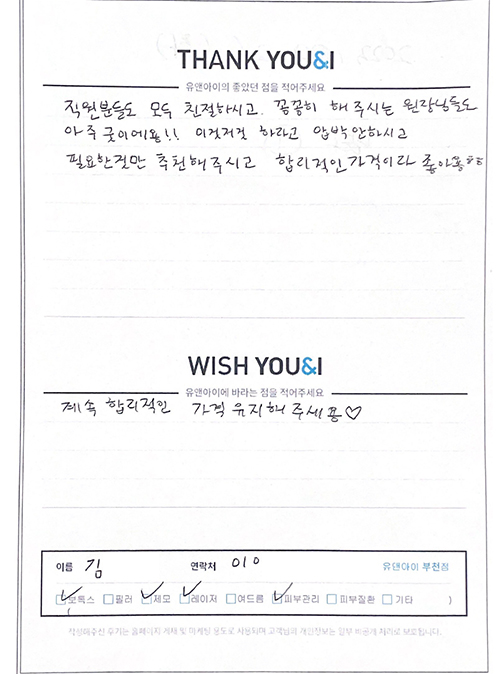 THANK YOU&I
유앤아이의 좋았던 점을 적어주세요
직원분들도 모두 친절하시고 꼼꼼히 해 주시는 원장님들도
아주 굿이에용!! 이것저것 하라고 압박안하시고
필요한것만 추천해주시고 합리적인가격이라 좋아용ㅎㅎ
WISH YOU&I
유앤아이에 바라는 점을 적어주세요
계속 합리적인 가격 유지해 주세용♡
이름 김 연락처 010 유앤아이 부천점
보톡스 필러 제모 레이저 여드름 피부관리 피부질환 기타 )
(
작성해주신 후기는 홈페이지 게재 및 마케팅 용도로 사용되며 고객님의 개인정보는 일부 비공개 처리로 보호됩니다.